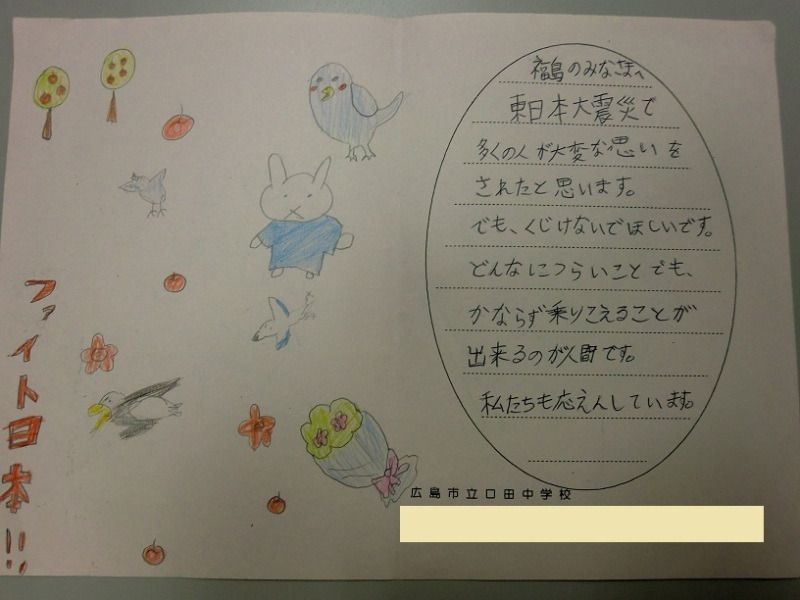 福島のみなさまへ
東日本大震災で
多くの人が大変な思いを
されたと思います。
でも、くじけないでほしいです。
どんなにつらいことでも、
かならず乗りこえることが
出来るのが人間です。
私たちも応えんしています。
広島市立口田中学校
ファイト日本!!